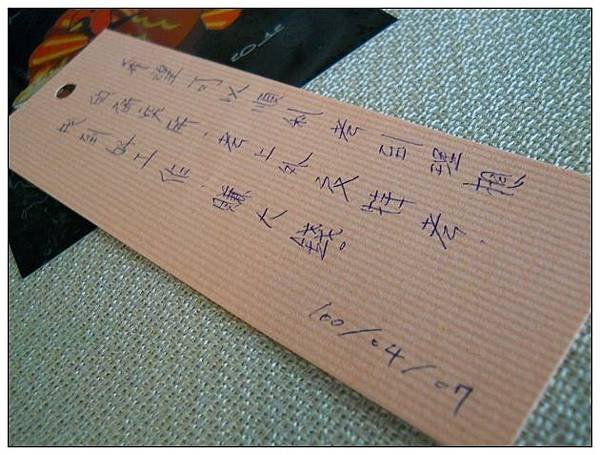 希望可以順利考到理想
的研究所，考上外交特考，
找到好工作，賺大錢。
100/04/07